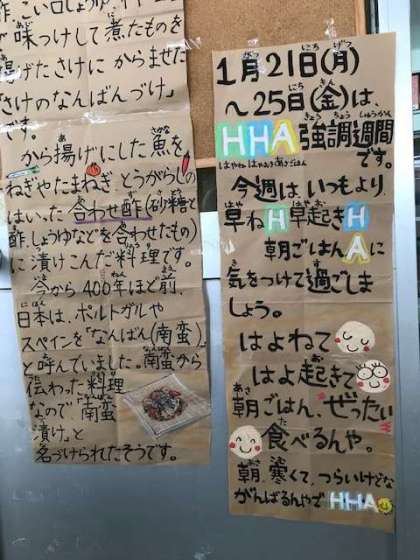 酢、こい口しょうゆ、
が味つけして煮たものを
揚げたさけに からませた
さけのなんばんづけ」
です。
から揚げにした魚を
ねぎやたまねぎ、とうがらしの
はいった 合わせ酢(砂糖と
酢、しょうゆなどを合わせたもの)
に漬けこんだ料理です。
今から400年ほど前、
日本は、ポルトガルや
スペインを「なんばん(南蛮)」
と呼んでいました。南蛮から
伝わった料理
なので「南蛮
漬け」と
名づけられたそうです。
1月21日(月)
～25日(金)は、
HHA強調週間
です。
今週は、いつもより
早ねH早起きH
朝ごはんAに
気をつけて過ごしま
しょう。
はよねて
はよ起きて
朝ごはん、ぜったい
食べるんや。
朝、寒くて、つらいけどな
がんばるんやで HHA